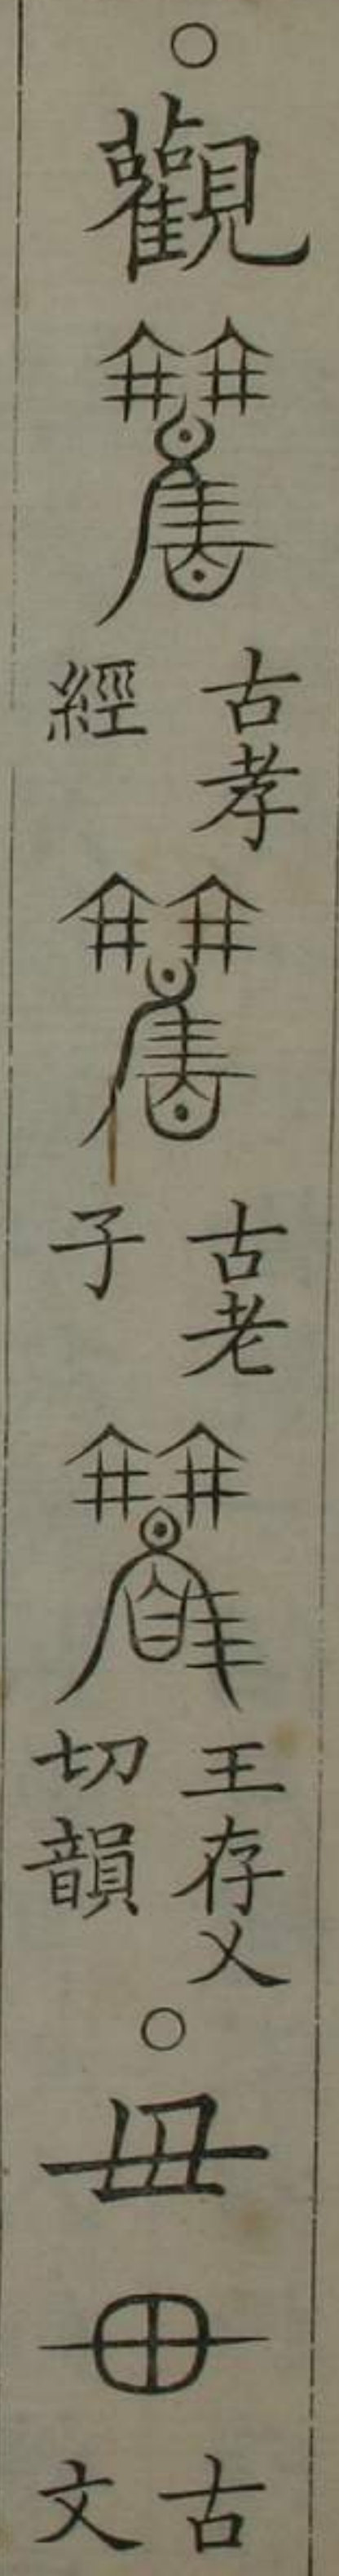 ○觀古孝經古老子王存乂切韻○毌古文